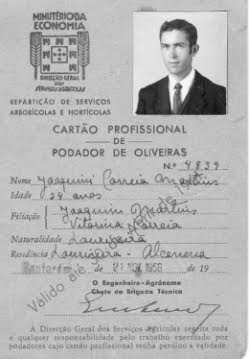 MINISTÉRIO DA
ECONOMIA
DIRECÇÃO GERAL
DOS
SERVIÇOS AGRÍCOLAS
REPARTIÇÃO DE SERVIÇOS
ARBORÍCOLAS E HORTÍCOLAS
CARTÃO PROFISSIONAL
DE
PODADOR DE OLIVEIRAS
N.º 4839
Nome Joaquim Correia Martins
Idade 24 anos
Filiação Joaquim Martins
Vitorina Correia
Naturalidade Louriceira
Residência Louriceira - Alcanena
Santarém, 21 NOV 1956 de 19
Válido até
O Engenheiro-Agrónomo
Chefe da Brigada Técnica
A Direcção Geral dos Serviços Agrícolas rejeita toda
e qualquer responsabilidade pelo trabalho executado por
podadores cujo cartão profissional tenha perdido a validade.